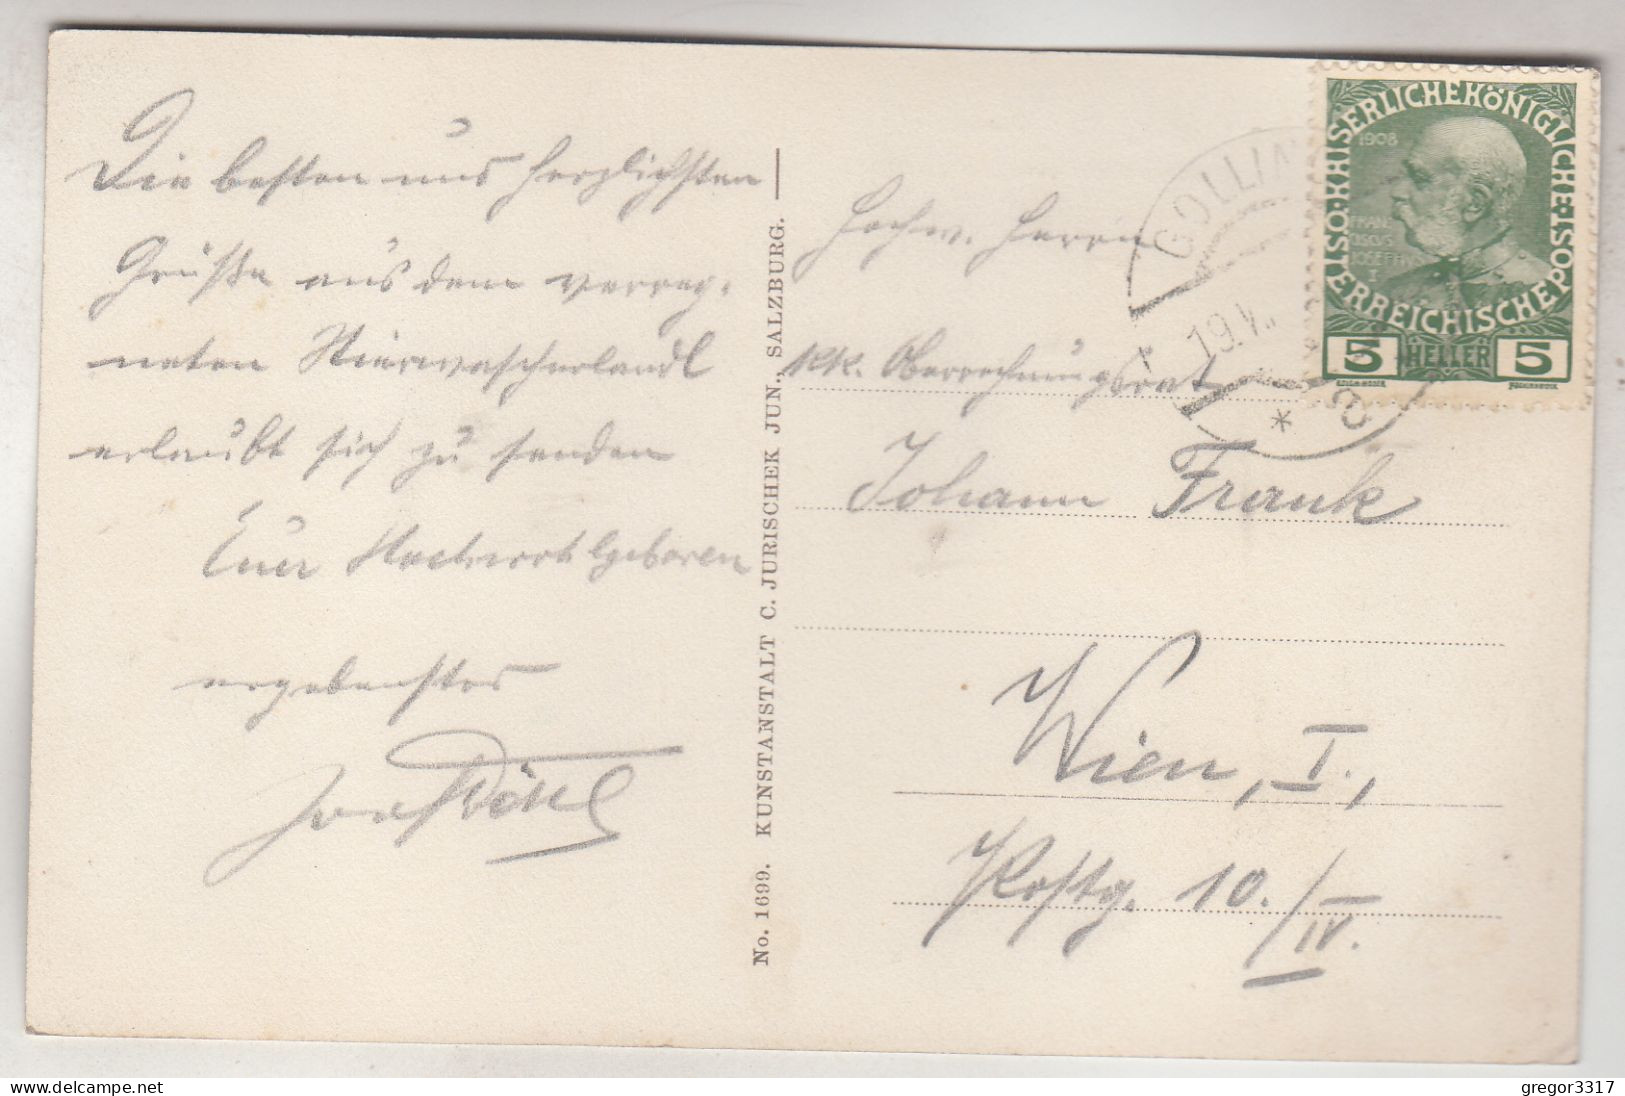 Die besten und herzlichsten
Grüße aus dem verreg-
neten Stierwascherlandl
erlaubt sich zu senden
Euer Hochwohlgeboren
ergebenster
No. 1699. KUNSTANSTALT C. JURISCHEK JUN., SALZBURG.
Hochw. Herrn
kk. Oberrechnungsrat
Johann Frank
Wien, I.,
Postg. 10./IV.
GOLLIN
19.V
KAISERLICHE KÖNIGLICHE ÖSTERREICHISCHE POST
1908
FRAN
CISCVS
IOSEPHVS
I
5 HELLER 5
www.delcampe.net
gregor3317